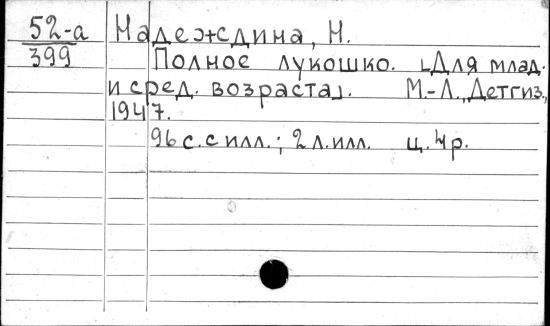 52-а Надеждина, Н.
399 Полное лукошко. [Для млад.
и сред. возраста]. М.-Л., Детгиз,
1947.
96 с. с илл.; 2 л. илл. ц. 4 р.